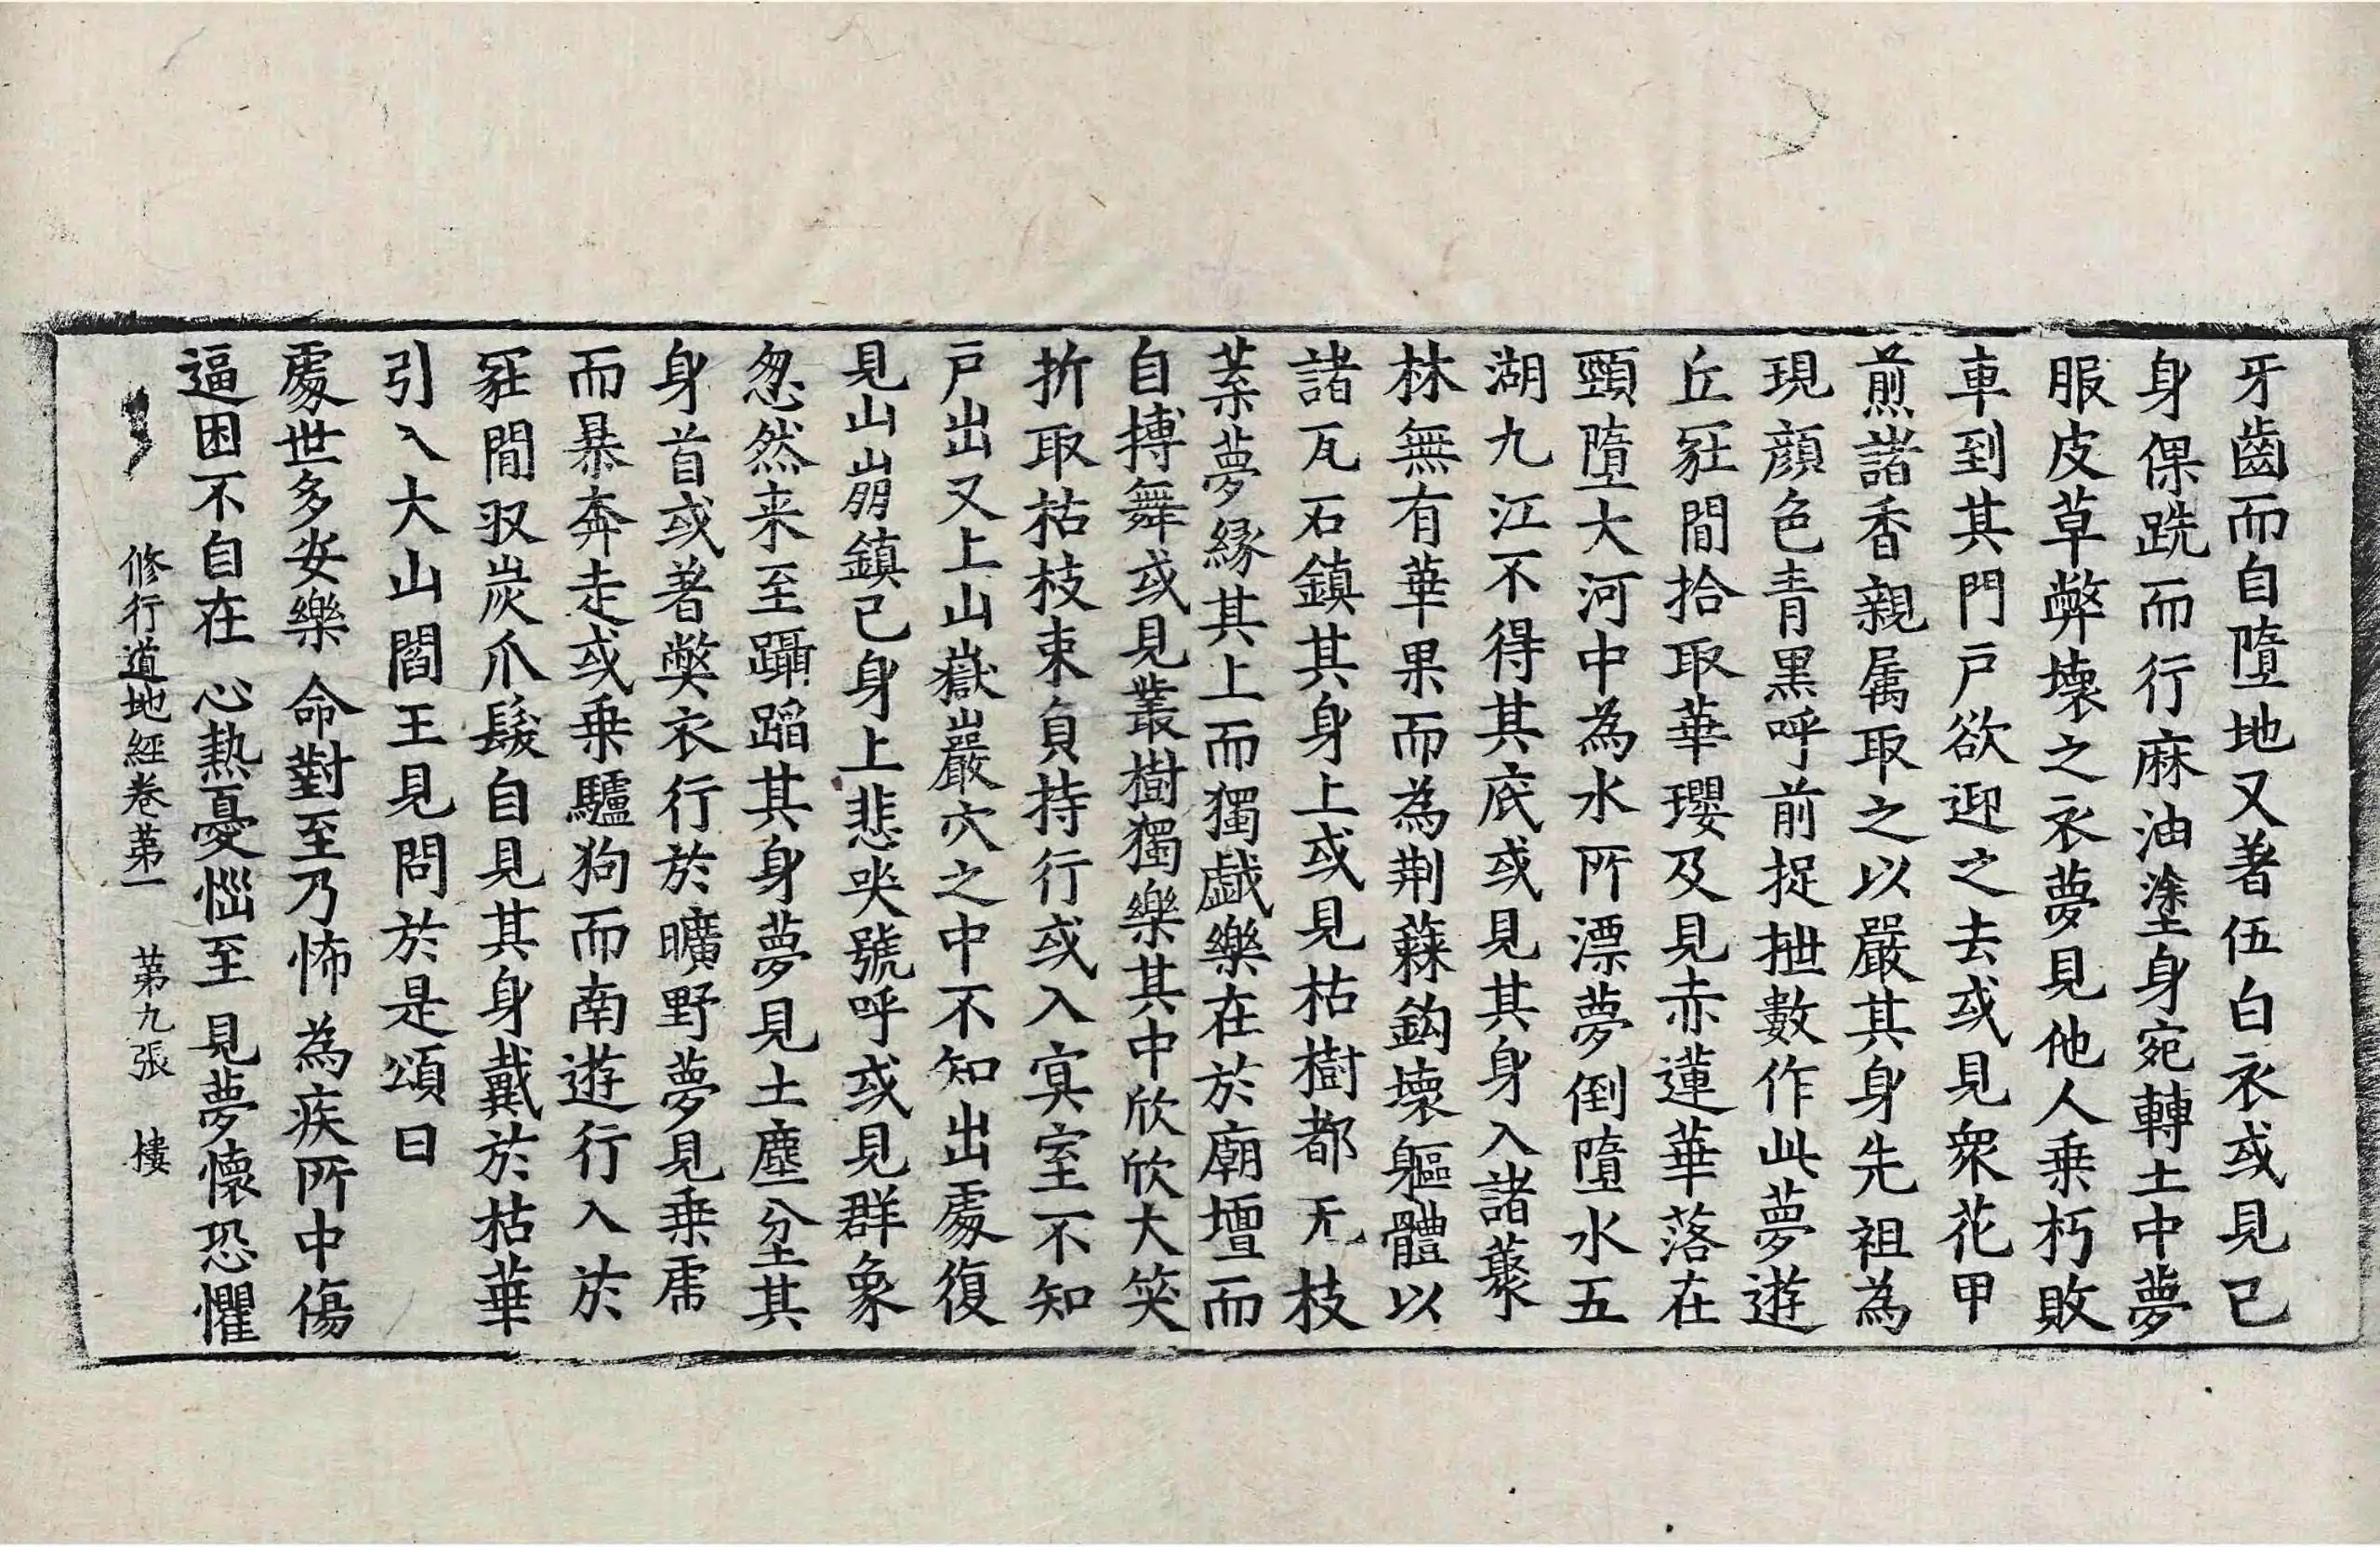 牙齒而自墮地又著伍白衣或見己
身倮跣而行麻油塗身宛轉土中夢
服皮草弊壞之衣夢見他人乗朽敗
車到其門戶欲迎之去或見衆花甲
煎諸香親属取之以嚴其身先祖為
現顔色青黑呼前捉抴數作此夢遊
丘冢間拾取華瓔及見赤蓮華落在
頸墮大河中為水所漂夢倒墮水五
湖九江不得其底或見其身入諸藂
林無有華果而為荆蕀鈎壞軀體以
諸瓦石鎮其身上或見枯樹都无枝
葉夢縁其上而獨戯樂在於廟壇而
自搏舞或見叢樹獨樂其中欣欣大笑
折取枯枝束負持行或入寘室不知
戶出又上山嶽巖穴之中不知出處復
見山崩鎮己身上悲哭號呼或見群象
忽然来至躡蹈其身夢見土塵坌其
身首或著弊衣行於曠野夢見乗虎
而暴奔走或乗驢狗而南遊行入於
冢間収炭爪髮自見其身戴於枯華
引入大山閻王見問於是頌曰
處世多安樂 命對至乃怖 為疾所中傷
逼困不自在 心熱憂惱至 見夢懷恐懼
修行道地經卷苐一 苐九張 樓